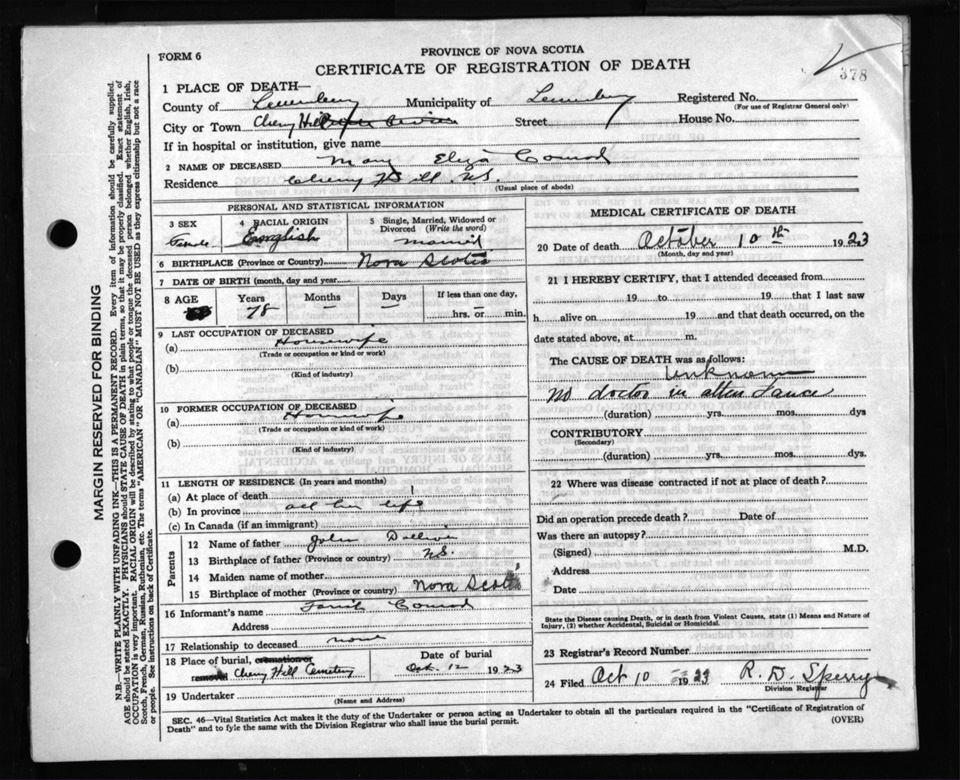 PROVINCE OF NOVA SCOTIA
FORM 6
CERTIFICATE OF REGISTRATION OF DEATH
378
1 PLACE OF DEATH—
County of Lunenburg Municipality of Lunenburg Registered No.
(For use of Registrar General only)
City or Town Cherry Hill Street House No.
If in hospital or institution, give name
2 NAME OF DECEASED Mary Eliza Conrad
Residence Cherry Hill N.S.
(Usual place of abode)
PERSONAL AND STATISTICAL INFORMATION
3 SEX Female
4 RACIAL ORIGIN English
5 Single, Married, Widowed or Divorced (Write the word) Married
6 BIRTHPLACE (Province or Country) Nova Scotia
7 DATE OF BIRTH (month, day and year)
8 AGE Years Months Days If less than one day,
78 — hrs. or min.
9 LAST OCCUPATION OF DECEASED
(a) Housewife
(Trade or occupation or kind or work)
(b)
(Kind of industry)
10 FORMER OCCUPATION OF DECEASED
(a) Housewife
(Trade or occupation or kind of work)
(b)
(Kind of industry)
11 LENGTH OF RESIDENCE (In years and months)
(a) At place of death
(b) In province all her life
(c) In Canada (if an immigrant)
Parents
12 Name of father John
13 Birthplace of father (Province or country) N.S.
14 Maiden name of mother
15 Birthplace of mother (Province or country) Nova Scotia
16 Informant's name Conrad
Address
17 Relationship to deceased none
18 Place of burial, cremation or removal Cherry Hill Cemetery
Date of burial
Oct. 12 1923
19 Undertaker
(Name and Address)
MEDICAL CERTIFICATE OF DEATH
20 Date of death October 10th 1923
(Month, day and year)
21 I HEREBY CERTIFY, that I attended deceased from
19 to 19 that I last saw
h alive on 19 and that death occurred, on the
date stated above, at m.
The CAUSE OF DEATH was as follows:
Unknown
No doctor in attendance
(duration) yrs. mos. dys
CONTRIBUTORY
(Secondary)
(duration) yrs. mos. dys.
22 Where was disease contracted if not at place of death?
Did an operation precede death? Date of
Was there an autopsy?
(Signed) M.D.
Address
Date
State the Disease causing Death, or in death from Violent Causes, state (1) Means and Nature of
Injury, (2) whether Accidental, Suicidal or Homicidal.
23 Registrar's Record Number
24 Filed Oct 10 1923 R. D. Sperry
Division Registrar
SEC. 46—Vital Statistics Act makes it the duty of the Undertaker or person acting as Undertaker to obtain all the particulars required in the "Certificate of Registration of
Death" and to fyle the same with the Division Registrar who shall issue the burial permit.
(OVER)
MARGIN RESERVED FOR BINDING
N.B.—WRITE PLAINLY WITH UNFADING INK—THIS IS A PERMANENT RECORD. Every item of information should be carefully supplied.
AGE should be stated EXACTLY. PHYSICIANS should STATE CAUSE OF DEATH in plain terms, so that it may be properly classified. Exact statement of
OCCUPATION is very important. RACIAL ORIGIN will be described by stating to what people or tongue the deceased person belonged whether English, Irish,
Scotch, French, German, Russian, Ruthenian, etc. The terms "AMERICAN" or "CANADIAN" MUST NOT BE USED as they express citizenship but not a race
or people. See instructions on back of Certificate.